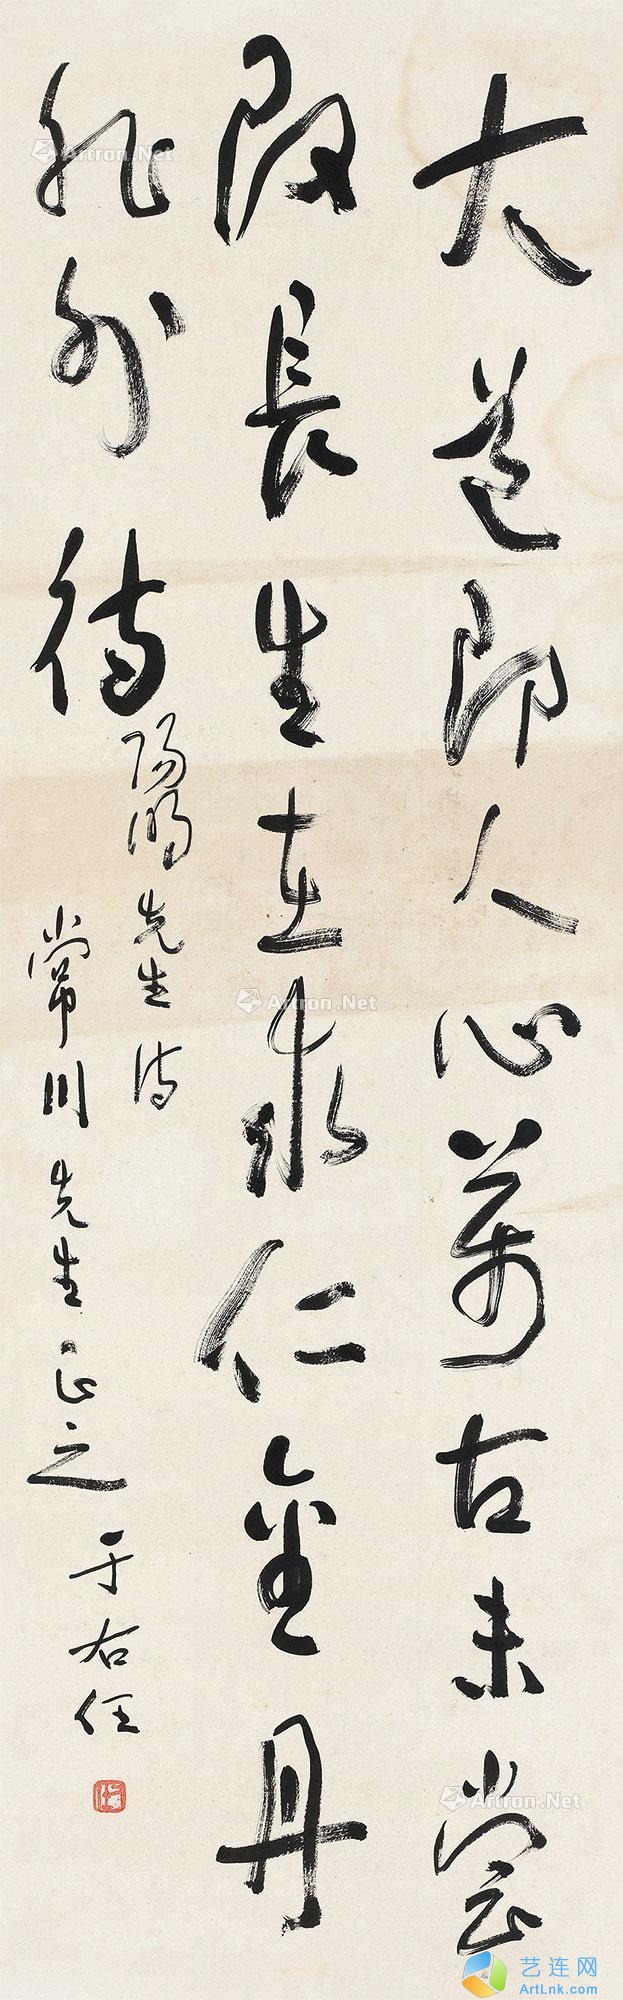 大道即人心萬古未嘗
改長生在求仁金丹
非外待
陽明先生诗
常川先生正之
于右任
Artron.Net
Artron.Net
Artron.Net
艺连网
ArtLnk.com